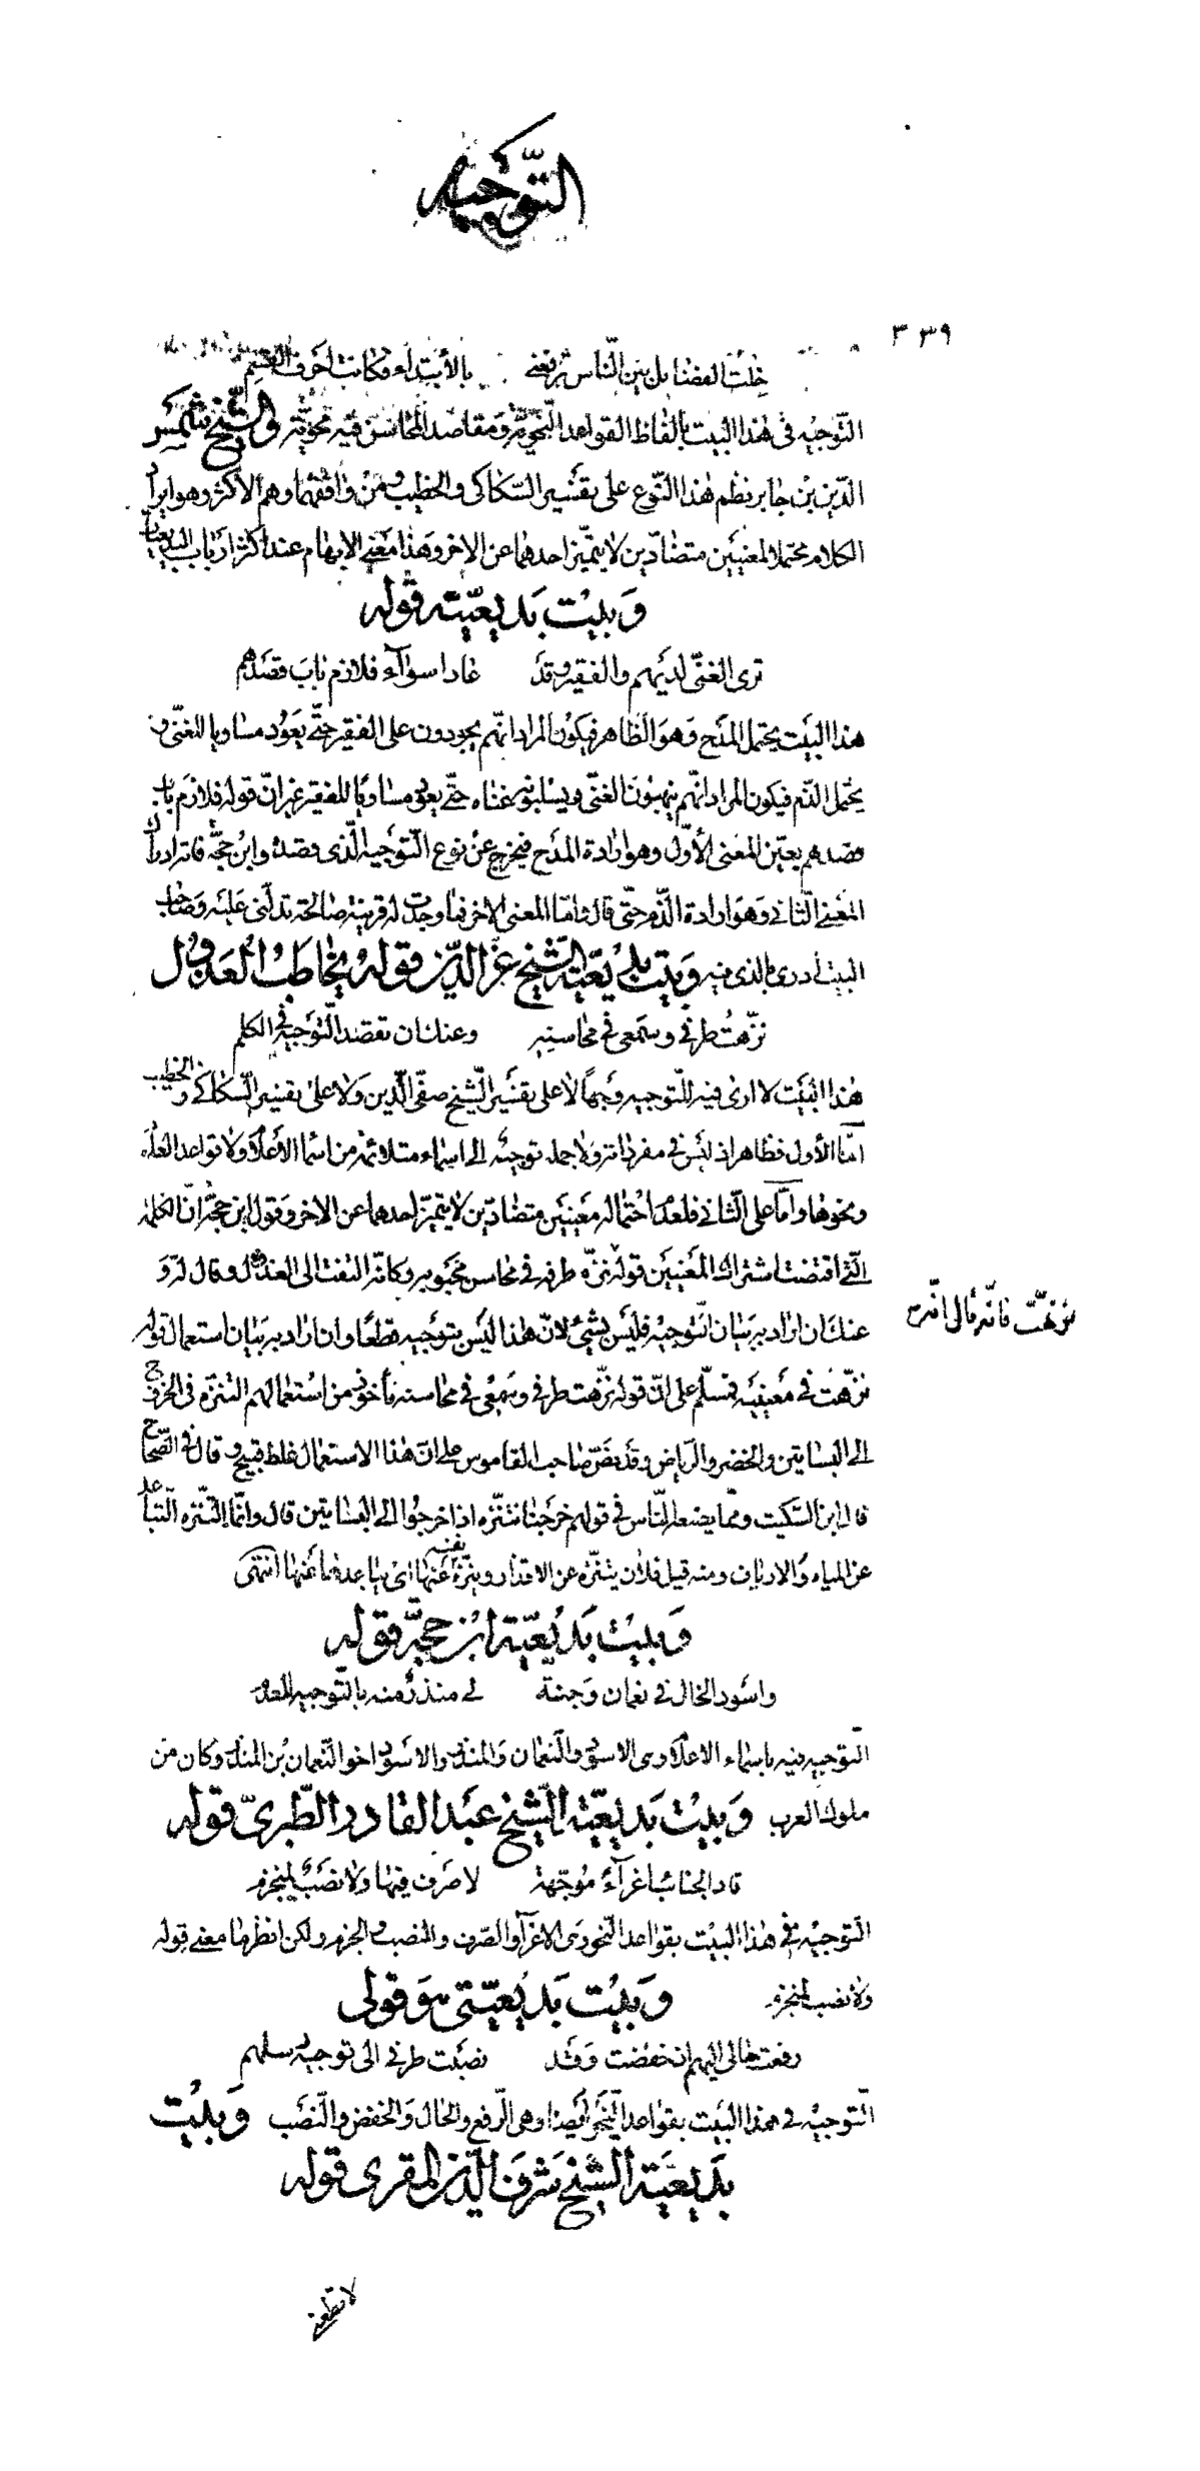 التوجيه
٣٣٩
خلت الفضايل بين الناس ترفعني بالأبتداء فكانت احرف القسم
التوجيه في هذا البيت بالفاظ القواعد النحوية ومقاصد المحاسن فيه نحوية والشيخ شمس
الدين بن جابر نظم هذا النوع على تفسير السكاكي والخطيب ومن وافقهما وهم الاكثر وهو ايراد
الكلام محتملا لمعنيين متضادين لا يتميز احدهما عن الاخر وهذا معنى الابهام عند اكثر ارباب البديعيات
وبيت بديعيته قوله
ترى الغني لديهم والفقير وقد عادا سواء فلازم باب قصدهم
هذا البيت يحتمل المدح وهو الظاهر فيكون المراد انهم يجودون على الفقير حتى يعود مساويا للغني و
يحتمل الذم فيكون المراد انهم ينهبون الغني ويسلبونه غناه حتى يعود مساويا للفقير غير ان قوله فلازم باب
قصدهم يعين المعنى الأول وهو ارادة المدح فيخرج عن نوع التوجيه الذي قصده وابن حجة فاته ادراك
المعنى الثاني وهو ارادة الذم حتى قال واما المعنى الاخر فما وجدت له قرينة صالحة تدلني عليه وصاحب
البيت ادرى بالذي فيه وبيت بديعية الشيخ عز الدين قوله يخاطب العذول
نزهت طرفي وسمعي في محاسنه وعنك ان تقصد التوجيه في الكلم
هذا البيت لا ارى فيه للتوجيه وجها لا على تفسير الشيخ صفي الدين ولا على تفسير السكاكي والخطيب
اما الأول فظاهر اذ ليس في مفرداته ولا جمله توجيه الى اسماء متلائمة من اسماء الأعلام ولا قواعد العلوم
ونحوها واما على الثاني فلعدم احتماله معنيين متضادين لا يتميز احدهما عن الاخر وقول ابن حجة ان الكلمة
التي اقتضت اشتراك المعنيين قوله نزه طرفه في محاسن محبوبه وكانه التفت الى العذول وقال له و
نزهت فانه قال انه
عنك ان اراد به بيان التوجيه فليس بشيئ لان هذا ليس بتوجيه قطعا وان اراد به بيان استعمال قوله
نزهت في معنييه فمسلم على ان قوله نزهت طرفي وسمعي في محاسنه مأخوذ من استعمالهم التنزه في الخروج
الى البساتين والخضر والرياض وقد نص صاحب القاموس على ان هذا الاستعمال غلط قبيح وقال في الصحاح
قال ابن السكيت ومما يضعه الناس في قولهم خرجنا نتنزه اذا خرجوا الى البساتين قال وانما التنزه التباعد
عن المياه والارياف ومنه قيل فلان يتنزه عن الاقذار وينزه نفسه عنها اي يباعدها عنها انتهى
وبيت بديعية ابن حجة قوله
واسود الخال في نعمان وجنته لي منذر منه بالتوجيه للعدم
التوجيه فيه باسماء الاعلام وهي الاسود والنعمان والمنذر والاسود اخو النعمان بن المنذر وكان من
ملوك العرب وبيت بديعية الشيخ عبد القادر الطبري قوله
قاد الجنائب اغراء موجهة لا صرف فيها ولا نصب لمنجزم
التوجيه في هذا البيت بقواعد النحو وهي الاغراء والصرف والنصب والجزم ولكن انظر ما معنى قوله
ولا نصب لمنجزم وبيت بديعيتي هو قولي
رفعت حالي اليهم اذ خفضت وقد نصبت طرفي الى توجيه سلمهم
التوجيه في هذا البيت بقواعد النحو ايضا وهي الرفع والحال والخفض والنصب وبيت
بديعية الشيخ شرف الدين المقري قوله